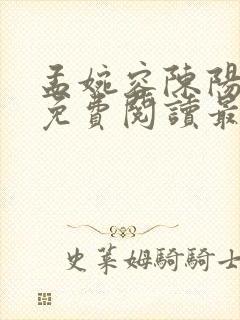 孟婉容陳陽
免費閱讀最
史萊姆騎騎士